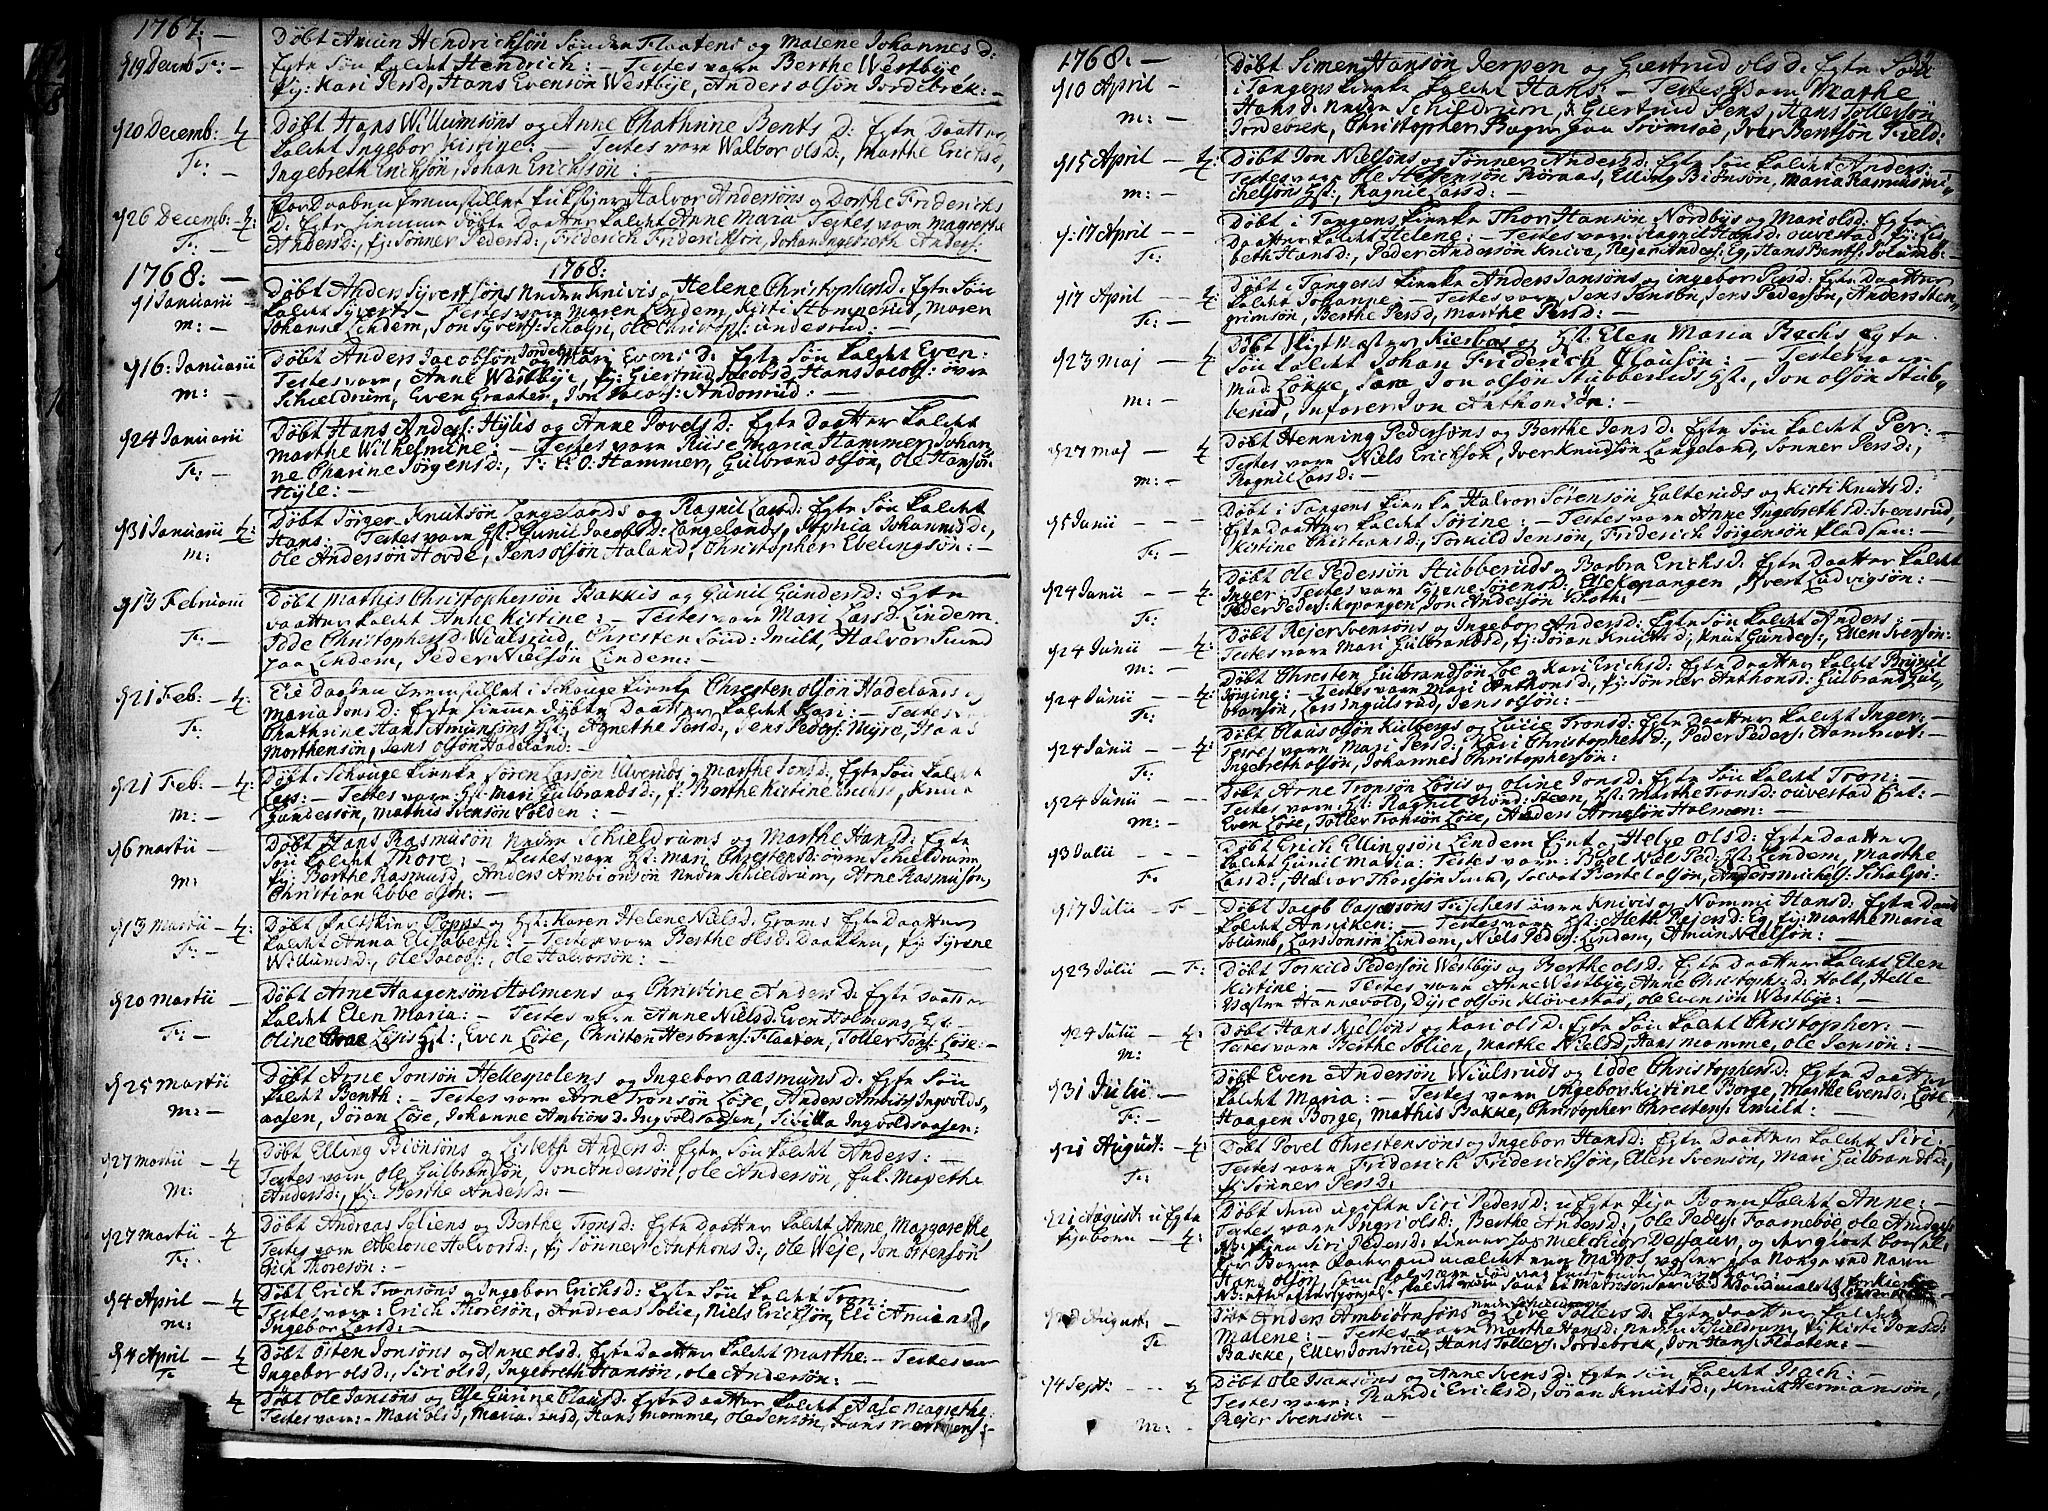 1767: —
D 19 Decemb F: —
Døbt Amun Hendrichsøn Sønden Flaatens og Malene Johannes d:
Egte Søn kaldet Hendrich: — Testes vare Berthe Westbÿe
Pi: Kari Persd, Hans Evensøn Westbÿe, Anders olsøn Jordebrek: —
D 20 Decemb: —
F: —
Døbt Hans Willumsøns og Anne Chathrine Bents D: Egte Daatter
kaldet Ingebor — Testes vare Walbor olsd:, Marthe Erichsd,
Ingebreth Erichsøn, Johan Erichsøn: —
D 26 Decemb: —
F: —
Halvor Andersøns og Dorthe Fridrichs
D: Egte hiemme døbte Daatter kaldet Anne Maria Testes vare Magrethe
Anders d:, Pi: Sønner Peders d:, Friderich Friderichsøn, Johan Ingebreth Anders:
1768: —
1768:
D 1 Januarii
m: —
Døbt Anders Syvertsøns Neden Knivis og Helene Christophersd Egte Søn
kaldet Syvert — Testes vare Maren Lindem, Kirsti Stomperud, Maren
Johanne Lindem, Jon Syvers: Schaln, Ole Christops: underrud: —
D 16: Januarii
m: —
Døbt Anders Jacobsøn Jordebreks og Mari Evens D: Egte Søn kaldet Even:
Testes vare, Anne Westbÿe, Pi: Giertrud Jacobsd, Hans Jacobs: øvre
Schieldrum, Even Graaten, Jon Jacobs: Andorsrud: —
D 24 Januarii
F: —
Døbt Hans Anders: Hÿlis og Anne Povelsd: Egte Daatter kaldet
Marthe Wilhelmine: — Testes vare Ruse Maria Hammer, Johan
ne Charine Jørgens d:, F: C: O: Hammer, Gulbrand olsøn, Ole Hansøn
Hÿle: —
D 31 Januarii
m: —
Døbt Jørger Knutsøn Langelands og Ragnil Larsd: Egte Søn kaldet
Hans: — Testes vare Hst: Gunil Jacobs D: Langelands, Sophia Johannis d:,
Ole Andersøn Hovde, Jens olsøn Haland, Christopher Ebelingsøn: —
D 13 Februarii
F: —
Døbt Mathis Christophersøn Bakkis og Gunil Gunders d: Egte
Daatter kaldet Anne Kistine: — Testes vare Mari Larsd Lindem,
Lede Christophersd Wiulsrud, Chresten Emilt, Halvor Svend
paa Lindem, Peder Nielsøn Lindem: —
D 21 Feb: —
F: —
Daaben fremstillet i Schouge kirke Chresten olsøn Hadelands og
Maria Jons d: Egte hiemme døbte Daatter kaldet Kari: — Testes vare
Chathrine Hans Amunsøns Hst:, Agnethe Persd:, Jens Peders: Mÿre, Hans
Morthensøn, Jens olsøn Hadeland: —
D 21 Feb: —
m: —
Døbt i Schouge kirke Søren Larsøn Ulverids og Marthe Jonsd, Egte Søn kaldet
Lars: — Testes vare Hst: Mari Gulbrands d:, Berthe Kistine, Knut
Gundersøn, Mathis Jensøn Solden: —
D 6 martii
m:
Døbt Hans Rasmusøn Neden Schieldrums og Marthe Hansd: Egte
Søn kaldet Thore: — Testes vare Hst: Mari Christensd: øvre Schieldrum
Pi: Berthe Rasmusd, Anders Ambiornsøn Neden Schieldrum, Arne Rasmusøn,
Christian Ebbe olsøn: —
D 13 Martii —
F: —
Døbt Feltskiær Popps og Hst: Karen Helene Niels d: Grams Egte Daatter
kaldet Anna Elisabeth: — Testes vare Berthe ols d: Daatten, Pi Syrene
Willums d:, Ole Jacobs:, Ole Halvorsøn: —
D 20 martii —
F: —
Døbt Arne Haagensøn Holmens og Christine Anders D: Egte Daatter
kaldet Elen Maria: — Testes vare Anne Nielsd: Even Holmens, Hst:
Oline Løsis Hst:, Even Løse, Christen Hesbrans: Flaaten, Toller Tons: Løse: —
D 25 martii
m: —
Døbt Arne Jonsøn Hellespolens og Ingebor aasmuns D: Egte Søn
kaldet Benth: — Testes vare Arne Tronsøn Løse, Anders Ambiørs Ingvolds
aasen, Jøran Løse, Johanne Ambiors D: Ingvoldsaasen, Sivilla Ingvoldsaasen:
D 27 martii —
m:
Døbt Elling Biønsøns og Lisbeth Anders d: Egte Søn kaldet Anders: —
Testes vare Ole Gulbransøn, Jon Andersøn, Ole Andersøn, Magrethe
Anders d:, Pi: Berthe Anders d: —
D 27 martii —
F: —
Døbt Andreas Soliens og Berthe Trons d: Egte Daatter kaldet Anne Margarethe
Testes vare Abelone Halvors d:, Pi Sønner Anthons d:, Ole Weje, Jon Sørensøn,
Erich Thoresøn: —
D 4 April —
m: —
Døbt Erich Tronsøns og Ingebor Erichs d: Egte Søn kaldet Tron: —
Testes vare: Erich Thoresøn, Andreas Solie, Niels Erichsøn, Eli Amunsd,
Ingebor Larsd: —
D 4 April —
F:
Døbt Østen Jonsøns og Anne ols d: Egte Daatter kaldet Marthe: — Testes vare
Ingebor ols d:, Siri ols d, Ingebreth Hansøn, Ole Andersøn: —
Døbt Ole Jansøns og Else Gurine Claus d: Egte Daatter kaldet Aase Magrethe:
Testes vare: — Mari ols d, Maria, Hans Momme, Ole Jensøn, Hans Mortens: —
1768: —
D 10 April
m: —
Døbt Simen Hansøn Jerpen og Giertrud ols d: Egte Søn
i Tangens kirke kaldet Hans: — Testes vare Marthe
Hans d: Neden Schieldrum, Giertrud Pens, Hans Tollersøn
Jordebrek, Christopher Bagn paa Trømsøe, Iver Bentsøn Field:
D 15 April —
m: —
Døbt Jon Nielsøns og Sønner Anders d: Egte Søn kaldet Anders:
Testes vare Ole Helgensøn Røraas, Elling Biønsøn, Maria Rasmus mi
chelsøns Hst: Ragnil Lars d: —
D: 17 April —
F: —
Døbt i Tangens kirke Thor Hansøn Nordbÿs og Mari ols d: Egte
Daatter kaldet Helene: — Testes vare Ragnil Hans d: ouvestad, Pi: Lis
beth Hans d:, Peder Andersøn Knive, Rejer Anders: Eg, Hans Bents: Solumb: —
D 17 April —
F: —
Døbt i Tangens kirke Anders Jansøns og ingebor Pers d: Egte Daatter
kaldet Johanne: — Testes vare Jens Jensøn, Jens Pedersøn, Anders Sten
grimsøn, Berthe Pers d, Marthe Pers d: —
D 23 Maj —
m: —
Døbt Mester Kierboes og Hst: Elen Maria Bachs Egte
Søn kaldet Johan Friderich Clausøn: — Testes vare
Mad: Løkke, Sara Jon olsøn Stubberuds Hst:, Jon olsøn Stub
berud, Informator Jon Anthonisøn: —
D 27 Maj —
m: —
Døbt Henning Pedersøns og Berthe Jens d: Egte Søn kaldet Per: —
Testes vare Niels Erichsøn, Iver Knudsøn Langeland, Sønner Pers d:,
Ragnil Lars d: —
D 5 Junii —
F: —
Døbt i Tangens kirke Halvor Sørensøn Galteruds og Kisti Knuts d:
Egte Daatter kaldet Sørine: — Testes vare Anne Ingebreths d: Svensrud,
Kistine Christians d:, Torkild Jensøn, Friderich Jørgensøn Pladsen: —
D 24 Junii —
F: —
Døbt Ole Pedersøn Stubberuds og Barbra Erichs d: Egte Daatter kaldet
Inger: — Testes vare Syrene Sørens d:, Else Kopangen, Syvert Ludvigsøn: —
Peder Peders: Kopangen, Jon Andersøn Kloth: —
D 24 Junii —
m: —
Døbt Rejer Svensøns og Ingebor Anders d: Egte Søn kaldet Anders: —
Testes vare Mari Gulbrands d:, Pi: Jøran Knuts d:, Knut Gunders:, Ellen Svensøn:
D 24 Junii —
F: —
Døbt Christen Gulbrandsøn Loe og Kari Erichs d: Egte Daatter kaldet Brynil
Jørgine: — Testes vare Mari Anthons d:, Pi: Sønner Anthons d: Gulbrand Gul
bransøn, Lars Ingulsrud, Jens olsøn: —
D 24 Junii —
F: —
Døbt Claus olsøn Kulbergs og Lucie Trons d: Egte Daatter kaldet Inger:
Testes vare Mari Pers d:, Kari Christophers d:, Peder Peders: Hammert: —
Ingebreth olsøn, Johannes Christophersøn: —
D 24 Junii —
m: —
Døbt Arne Tronsøn Løsis og Oline Jons d: Egte Søn kaldet Tron: —
Testes vare: Hst: Ragnil Steen, Hst: Marthe Trons d: ouvestad Eje: —
Even Løse, Toller Tronsøn Løse, Anders Arnesøn Holmen: —
D 3 Julii —
F: —
Døbt Erich Ellingsøn Lindem Eje og Helge ols d: Egte Daatter
kaldet Gunil Maria: Testes vare: Bodil Niels Ped: Hst: Lindem, Marthe
Lars d:, Halvor Thoresøn Svend, Soldat Bertel olsøn, Anders Mickels: Schaln: —
D 17 Julii — F —
Døbt Jacob Casersøns Fischers øvre Knivis og Nommi Hans d: Egte Daat
kaldet Anniken: — Testes vare Hst: Alethe Rejers d: Eg, Pi: Marthe Maria
Solumb, Lars Jonsøn Lindem, Niels Peders: Lindem, Amun Nielsøn: —
D 23 Julii — F: —
Døbt Torkild Pedersøn Westbÿs og Berthe ols d: Egte Daatter kaldet Elen
Kistine: — Testes vare Anne Westbÿe, Anne Christophs d: Holt, Helle
Hannevold, Dyre olsøn Kløvestad, Ole Evensøn Westbÿe: —
D 24 Julii —
m: —
Døbt Hans Nielsøns og Kari ols d: Egte Søn kaldet Christopher: —
Testes vare Berthe Solien, Marthe Niels d, Hans Momme, Ole Jensøn: —
D 31 Julii —
F: —
Døbt Even Andersøn Wiulsruds og Lode Christophers d: Egte Daatter
kaldet Maria: — Testes vare Ingebor Kistine Borge, Marthe Evens d: Løse
Haagen Borge, Mathis Bakke, Christopher Chrestens: Emilt: —
D 21 August: —
F: —
Døbt Povel Chrestensøns og Ingebor Hans d: Egte Daatter kaldet Siri: —
Testes vare Friderich Friderichsøn, Ellen Svensøn, Mari Gulbrands d:,
Pi Sønner Pers d: —
D 21 August: u Egte
Pigeborn —
Døbt ugifte Siri Peders d: u Egte Pige Barn kaldet Anne:
Testes vare Ingri ols d:, Berthe Anders d:, Ole Peders: Faarneboe, Ole Anders
NB: Siri Peders d: Melchior Dessau, og
for Barne Fader een Matros, fra Norge ved Navn
Hans olsøn, som skal være død
NB:
D 28 August —
F: —
Døbt Anders Ambiørnsøns neden Schieldrums og Live Tollers d: Egte Daatter kaldet
Malene: — Testes vare Marthe Hans d: Neden Schieldrum, Pi Kirsti Jons d:
Bakke, Eller Jonsrud, Hans Tollers: Jordebrek, Jon Hans: Flaaten: —
D 4 Sept: —
m: —
Døbt Ole Isansøns og Anne Svens d: Egte Søn kaldet Isach: —
Testes vare: Randi Erichs d:, Jøran Knuts d:, Knut Hermansøn,
Rejer Svensøn: —